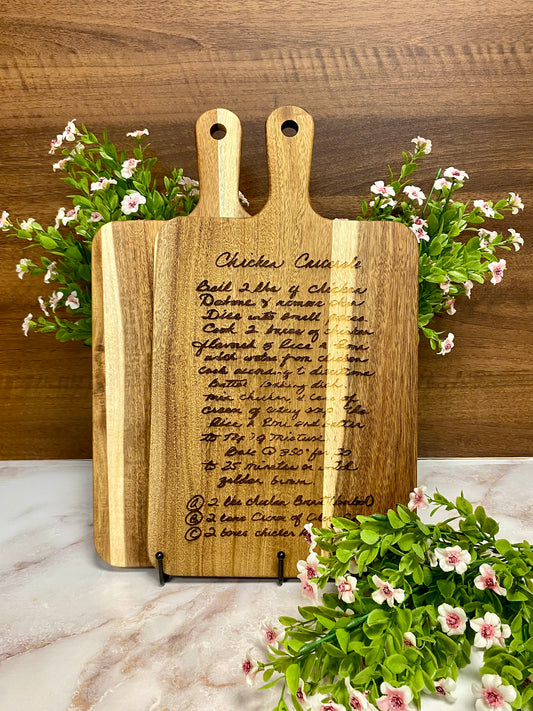 Chicken Casserole
Boil 2 lbs of chicken
Debone & remove skin
Dice into small
Cook 2 boxes of chicken
flavored of Rice a Roni
with water from chicken
cook according to directions
Butter baking dish.
mix chicken, 2 cans of
cream of celery soup,
Rice a Roni and
to top of mixture
Bake @ 350° for 20
to 25 minutes or until
golden brown
Ⓐ 2 lbs chicken Breast (boiled)
Ⓑ 2 cans Cream of
Ⓒ 2 boxes chicken